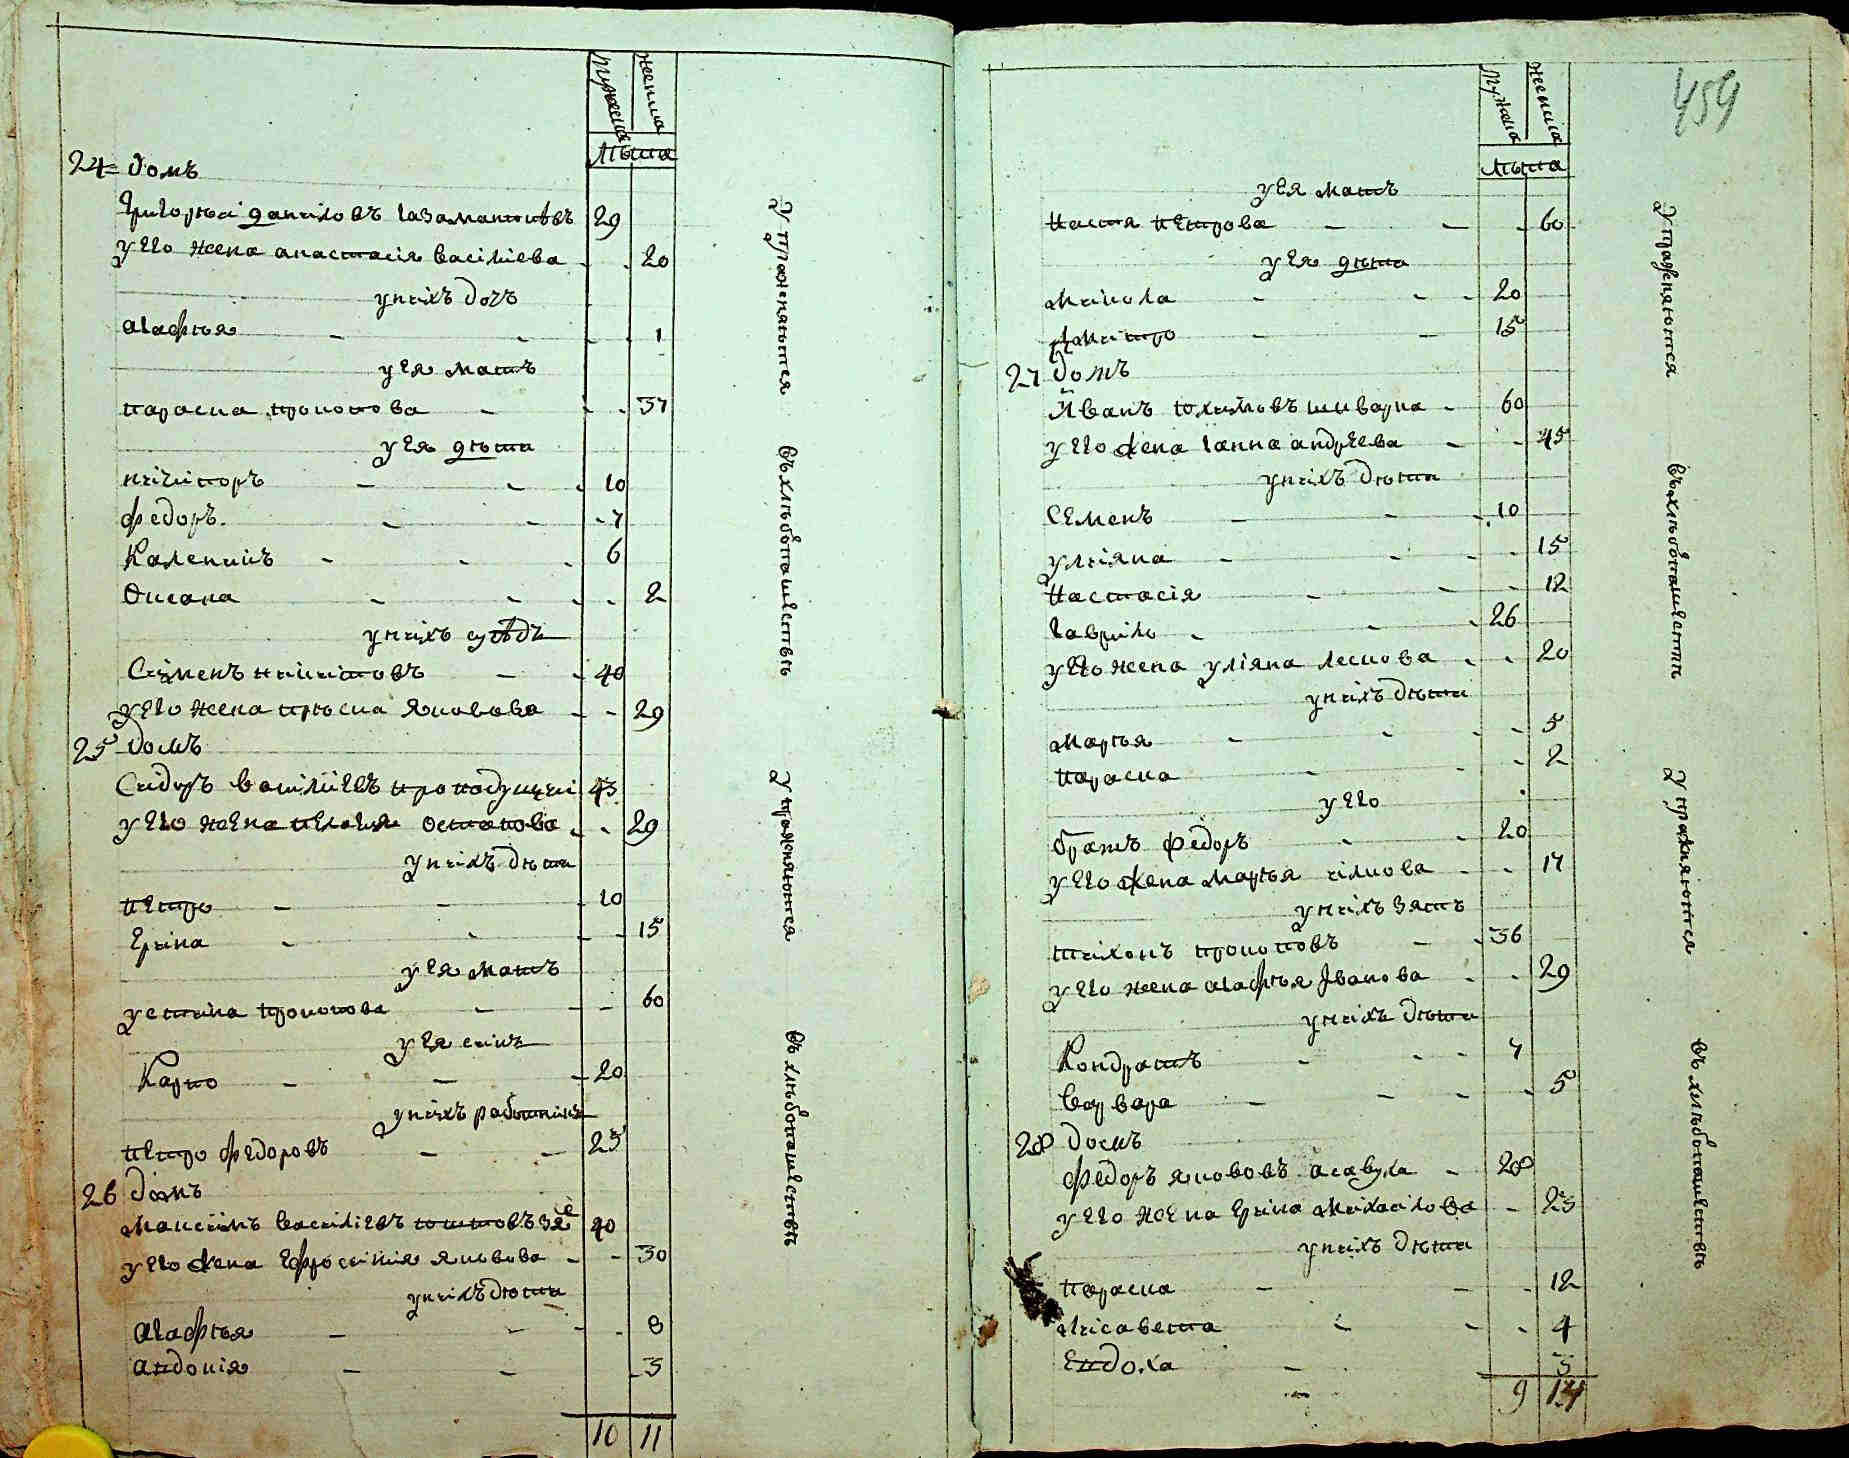 мужеска
женска
лѣта
24 домъ
Григорѣй даниловъ газаматовъ 29
у его жена анастасія василіева 20
у нихъ дочъ
агафѣя 1
у ея мать
параска прокопова 37
у ея дѣти
нѣчипоръ 10
федоръ 7
Каленикъ 6
Оксана 2
у нихъ сусѣдъ
Сѣменъ никитовъ 40
у его жена приска яковова 29
25 домъ
Сидоръ василіевъ 43
у его жена пелагея остапова 29
у нихъ дѣти
петро 10
Ерина 15
у ея мать
устина прокопова 60
у ея синъ
Карпо 20
у нихъ работникъ
петро федоровъ 25
26 домъ
Максимъ василіевъ 40
у его жена Ефросинія яковова 30
у нихъ дѣти
агафѣя 8
андокія 3
10 11
Упражняются
въ хлѣбопашествѣ
Упражняются
въ хлѣбопашествѣ
459
мужеска
женска
лѣта
у ея мать
настя петрова 60
у ея дѣти
микола 20
дмитро 15
27 домъ
Иванъ юхимовъ шкварка 60
у его жена ганна андреева 45
у нихъ дѣти
Семенъ 10
уліяна 15
настасія 12
гаврило 26
у его жена уліяна лескова 20
у нихъ дѣти
марѣя 5
параска 2
у его
братъ федоръ 20
у его жена марѣя ѣлкова 17
у нихъ зять
тихонъ прокоповъ 36
у его жена агафѣя Іванова 29
у нихъ дѣти
Кондратъ 7
варвара 5
28 домъ
федоръ яcововъ асавула 28
у его жена Ерина михайлова 23
у нихъ дѣти
параска 12
лисавета 4
Евдоха 3
9 14
Упражняются
въ хлѣбопашествѣ
Упражняются
въ хлѣбопашествѣ